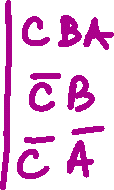 CBA
C̅B
C̅A̅